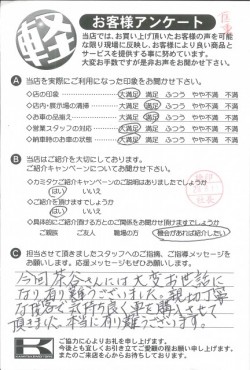 軽
お客様アンケート
当店では、お買い上げ頂いたお客様の声を可能な限り現場に反映し、お客様により良い商品と
サービスを提供する事に努めています。
大変お手数ですが是非お声をお聞かせ下さい。
A 当店を実際にご利用になった印象をお聞かせ下さい。
◇店の印象 大満足 満足 ふつう やや不満 不満
◇店内・展示場の清掃 大満足 満足 ふつう やや不満 不満
◇お車の品揃え 大満足 満足 ふつう やや不満 不満
◇営業スタッフの対応 大満足 満足 ふつう やや不満 不満
◇納車時のお車の状態 大満足 満足 ふつう やや不満 不満
B 当店はご紹介を大切にしております。
ご紹介キャンペーンについてお聞かせ下さい。
◇カミタケご紹介キャンペーンのご説明はありましたでしょうか
はい いいえ
◇ご紹介を頂けますでしょうか
はい いいえ
◇具体的にご紹介頂ける方とのご関係をお聞かせ頂けますでしょうか
ご親族 ご友人 職場の方 機会があれば紹介したい
C 担当させて頂きましたスタッフへのご指摘、ご指導メッセージを
お願いします。応援メッセージもぜひお願いします。
今回茶谷さんには大変お世話に
なり有り難うございました。親切丁寧
気持良く車を購入させて
頂きました。本当に有り難うございます。
K
ご協力に心よりお礼を申し上げます。
今後とも宜しくお引き立てご愛顧の程お願い申し上げます。
またのご来店を心からお待ちしております。